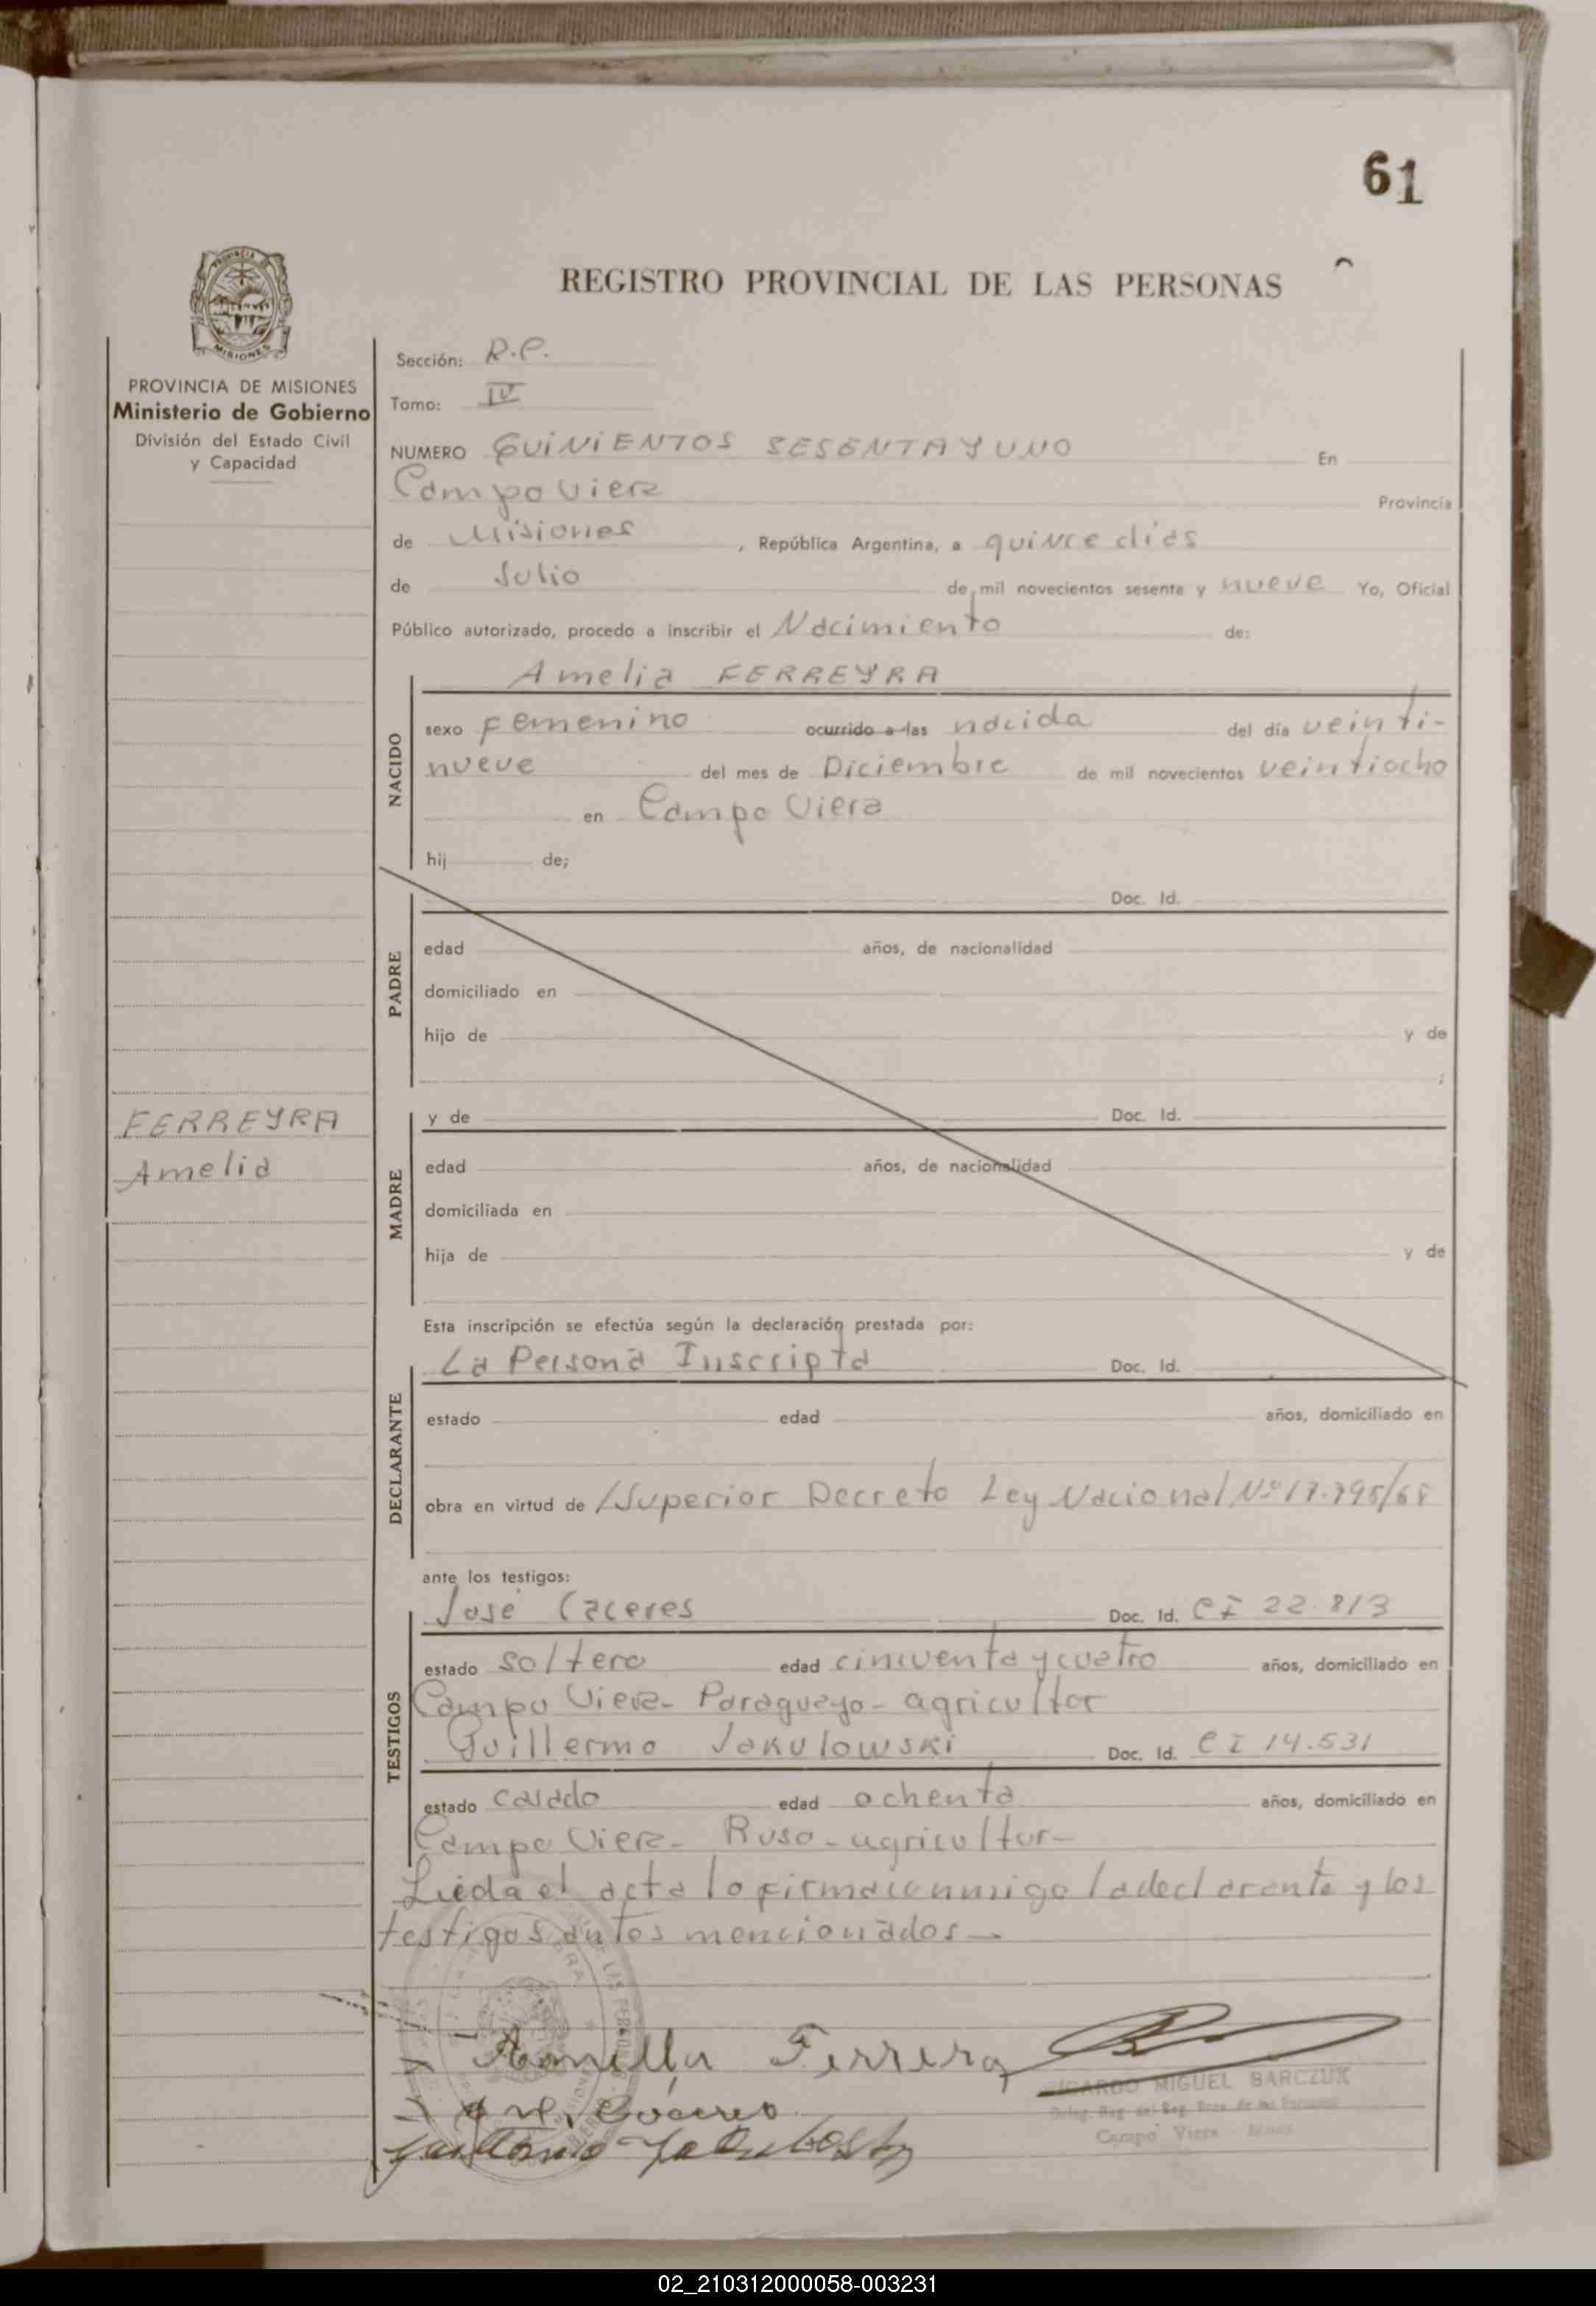 61
REGISTRO PROVINCIAL DE LAS PERSONAS
PROVINCIA
MISIONES
PROVINCIA DE MISIONES
Ministerio de Gobierno
División del Estado Civil
y Capacidad
Sección: R.P.
Tomo: IV
NUMERO QUINIENTOS SESENTA Y UNO En
Campo Viera Provincia
de Misiones, República Argentina, a quince dias
de Julio de mil novecientos sesenta y nueve Yo, Oficial
Público autorizado, procedo a inscribir el Nacimiento de:
Amelia FERREYRA
NACIDO
sexo Femenino ocurrido a las nacida del día veinti-
nueve del mes de Diciembre de mil novecientos veintiocho
en Campo Viera
hij de;
PADRE
Doc. Id.
edad años, de nacionalidad
domiciliado en
hijo de y de
;
FERREYRA
Amelia
MADRE
y de Doc. Id.
edad años, de nacionalidad
domiciliada en
hija de y de
Esta inscripción se efectúa según la declaración prestada por:
La Persona Inscripta Doc. Id.
DECLARANTE
estado edad años, domiciliado en
obra en virtud de /Superior Decreto Ley Nacional Nº
ante los testigos:
José Caceres Doc. Id. CI 22.813
TESTIGOS
estado soltero edad cincuenta y cuatro años, domiciliado en
Campo Viera- Paraguayo- agricultor
Guillermo Jakulowski Doc. Id. CI 14.531
estado casado edad ochenta años, domiciliado en
Campo Viera- Ruso- agricultor-
Lieda el acta lo firma conmigo la declarante y los
testigos antes mencionados-
Ferrera
RICARDO MIGUEL BARCZUK
Campo Viera
02_210312000058-003231